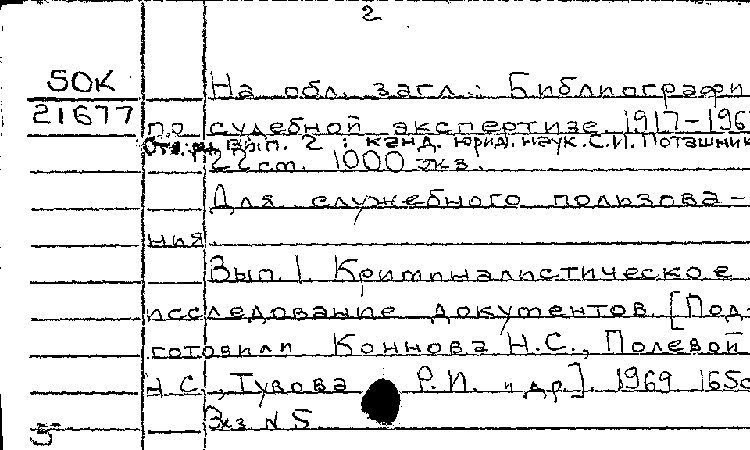 2
50К
21677
На обл. загл.: Библиографи
по судебной экспертизе. 1917-196
Отв. ред. вып. 2: канд. юрид. наук. С.И. Поташник
22 см. 1000 экз.
Для служебного пользова-
ния.
Вып. 1. Криминалистическое
исследование документов. [Под-
готовили Коннова Н.С., Полевой
Н.С., Тузова Р.И. и др.]. 1969 165с
Экз N 5
5